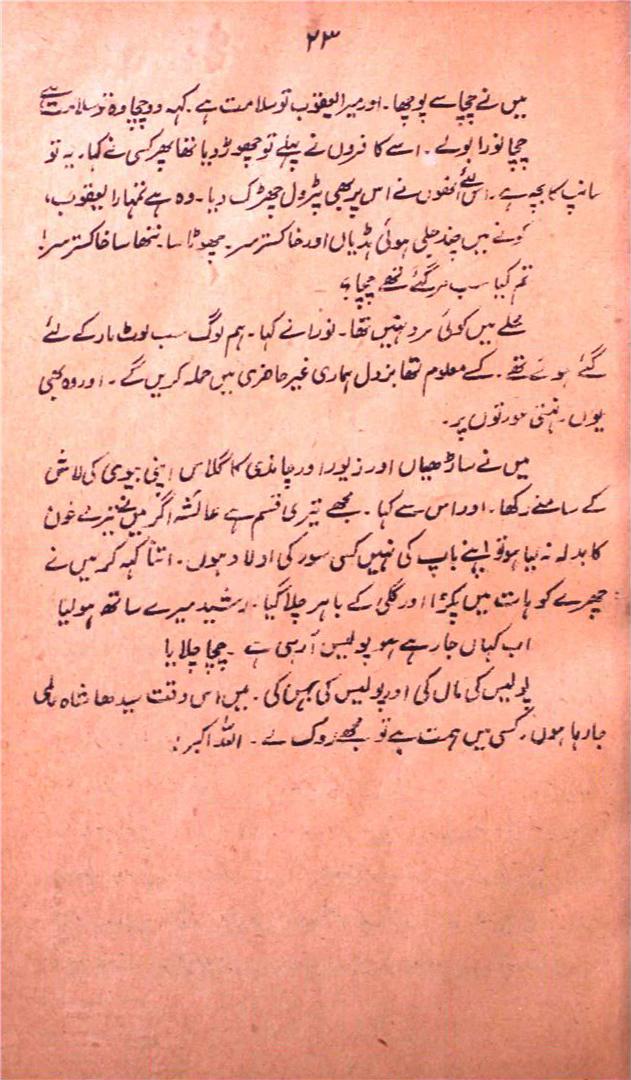 ۲۳
میں نے چچا سے پوچھا۔ اور میرا یعقوب تو سلامت ہے۔ کہہ دو چچا وہ تو سلامت ہے
چچا نورا بولے۔ اسے کافروں نے پہلے تو چھوڑ دیا تھا پھر کسی نے کہا۔ یہ تو
سانپ کا بچہ ہے۔ اس لئے اُنھوں نے اس پر بھی پٹرول چھڑک دیا۔ وہ ہے تمہارا یعقوب،
کونے میں چند جلی ہوئی ہڈیاں اور خاکستر۔ چھوٹا سا۔ ننھا سا خاکستر سر!
تم کیا سب مر گئے تھے چچا؟
محلے میں کوئی مرد نہیں تھا۔ نورا نے کہا۔ ہم لوگ سب لوٹ مار کے لئے
گئے ہوئے تھے۔ کسے معلوم تھا بزدل ہماری غیر حاضری میں حملہ کریں گے۔ اور وہ بھی
یوں۔ نہتی عورتوں پر۔
میں نے ساڑھیاں اور زیور اور چاندی کا گلاس اپنی بیوی کی لاش
کے سامنے رکھا۔ اور اس سے کہا۔ مجھے تیری قسم ہے عائشہ اگر میں نے تیرے خون
کا بدلہ نہ لیا ہو تو اپنے باپ کی نہیں کسی سور کی اولاد ہوں۔ اتنا کہہ کر میں نے
چھرے کو ہات میں پکڑا اور گلی کے باہر چلا گیا۔ رشید میرے ساتھ ہو لیا
اب کہاں جا رہے ہو پولیس آ رہی ہے۔ چچا چلایا
پولیس کی ماں کی اور پولیس کی بہن کی۔ میں اس وقت سیدھا شاہ عالمی
جا رہا ہوں۔ کسی میں ہمت ہے تو مجھے روک لے۔ اللہ اکبر!